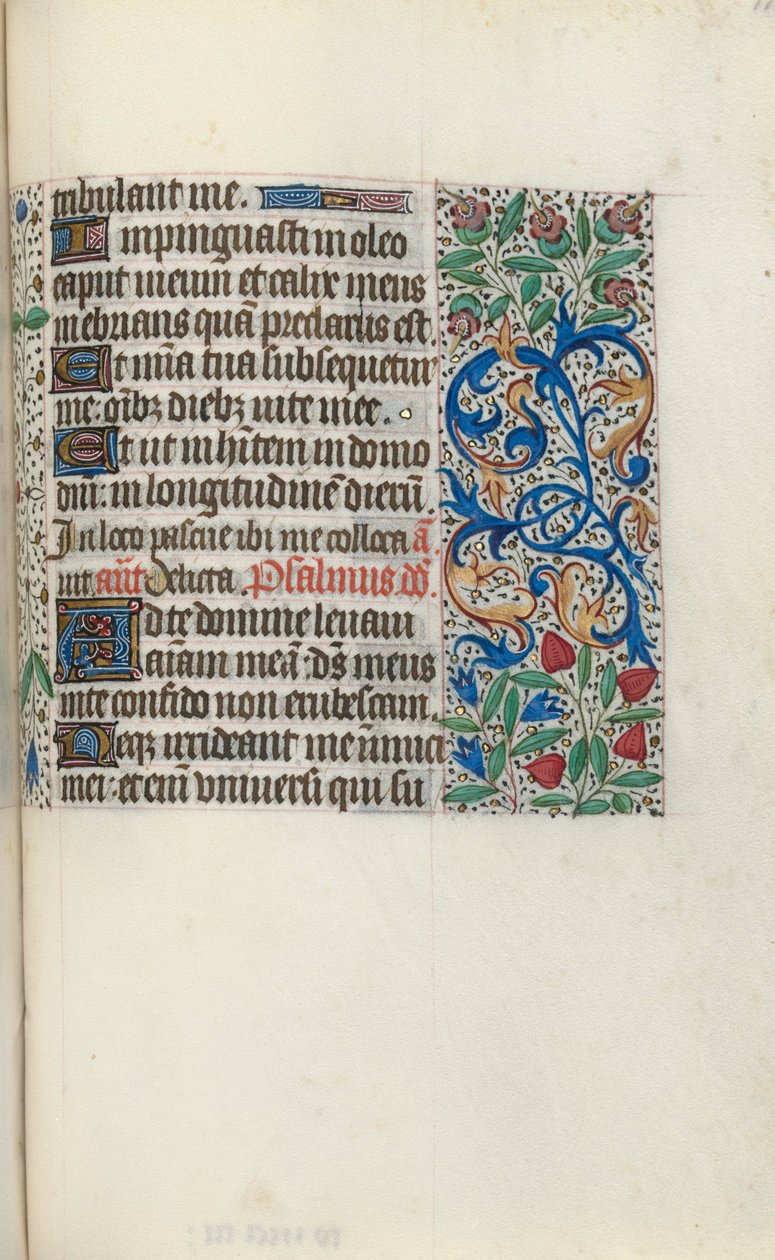 tribulant me.
Impinguasti in oleo
caput meum et calix meus
inebrians quā preclarus est.
Et mīa tua subsequetur
me: oībꝫ diebꝫ uite mee.
Et ut inhītem in domo
dnī: in longitudinē dierū.
In loco pascue ibi me collocā ā.
uit añt Delicta. Psalmus dd̄.
Ad te domine leuaui
aīam meā: ds̄ meus
in te confido non erubescam.
Neqꝫ irrideant me inimici
mei: etenī vniuersi qui su